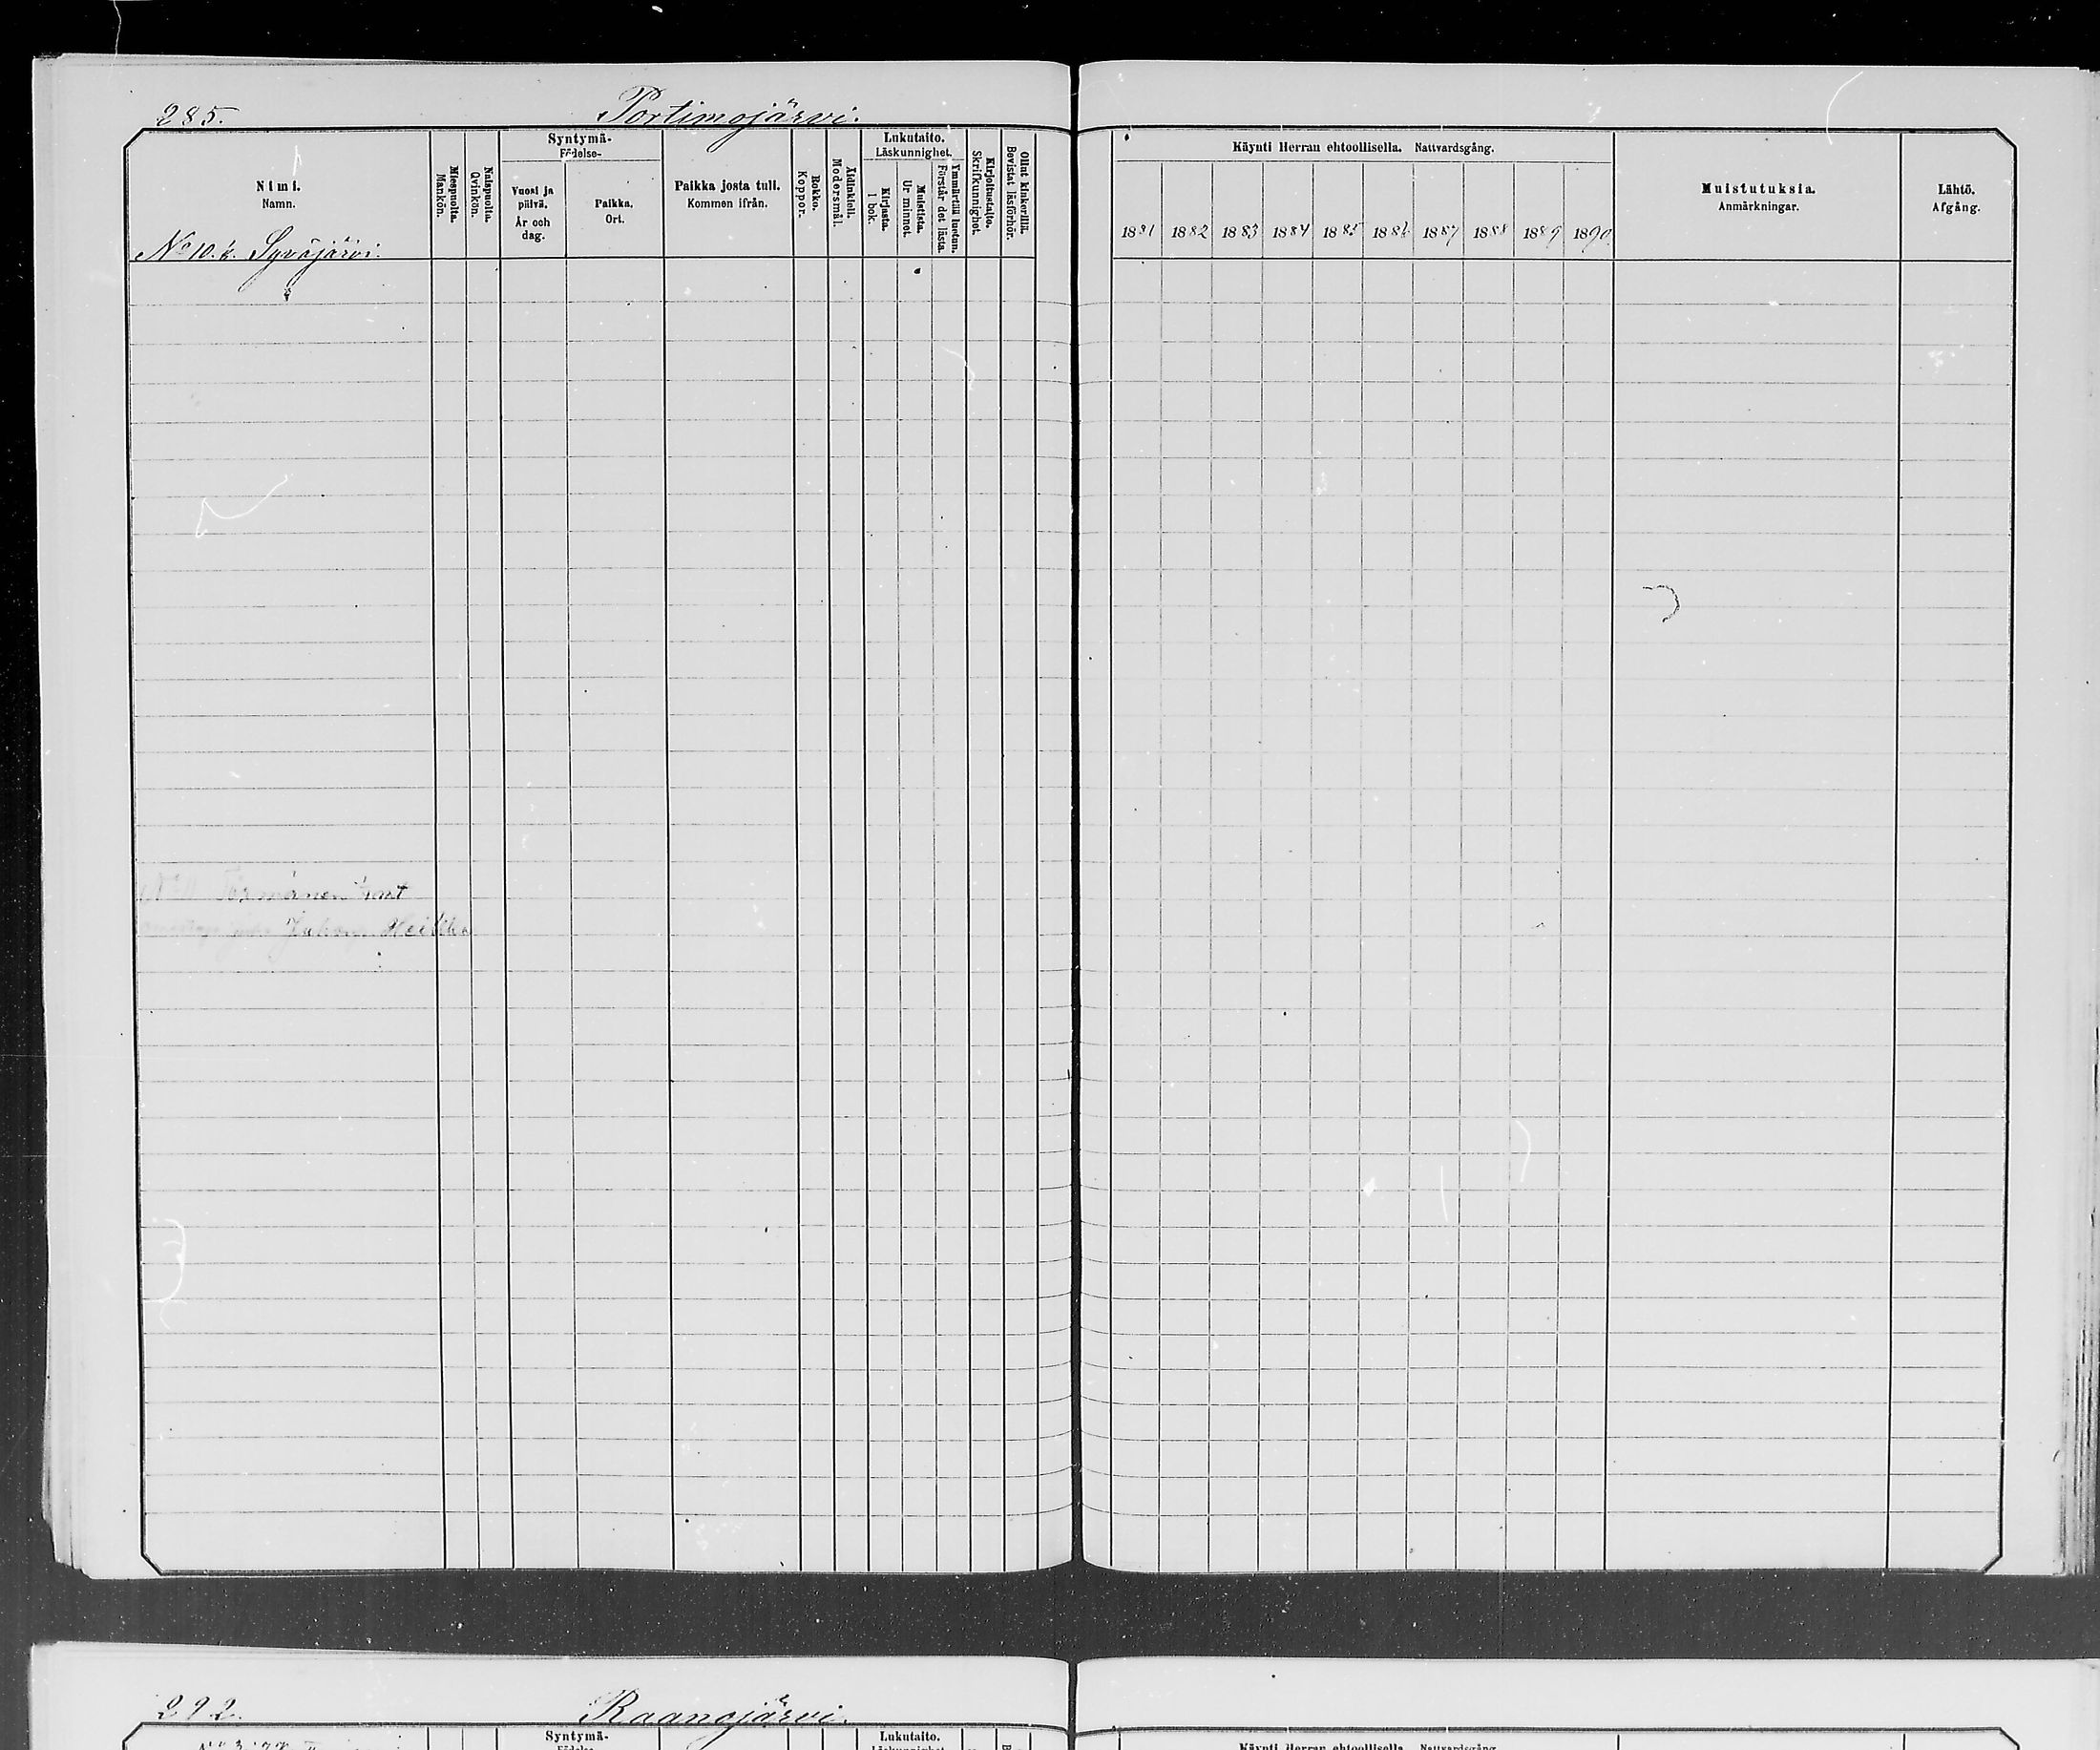 285.
Portimojärvi.
Nimi.
Namn.
Miespuolta.
Mankön.
Naispuolta.
Qvinkön.
Syntymä-
Födelse-
Vuosi ja
päivä.
År och
dag.
Paikka.
Ort.
Paikka josta tuli.
Kommen ifrån.
Rokko.
Koppor.
Äidinkieli.
Modersmål.
Lukutaito.
Läskunnighet.
Kirjasta.
I bok.
Muistista.
Ur minnet.
Ymmärtää luetun.
Förstår det lästa.
Kirjoitustaito.
Skrifkunnighet.
Ollut kinkerillä.
Bevistat läsförhör.
Käynti Herran ehtoollisella. Nattvardsgång.
1881 1882 1883 1884 1885 1886 1887 1888 1889 1890
Muistutuksia.
Anmärkningar.
Lähtö.
Afgång.
No 10. Syväjärvi.
Törmänen
Juhan Heikki
292.
Raanojärvi.
Syntymä-
Lukutaito.
Käynti Herran ehtoollisella. Nattvardsgång.